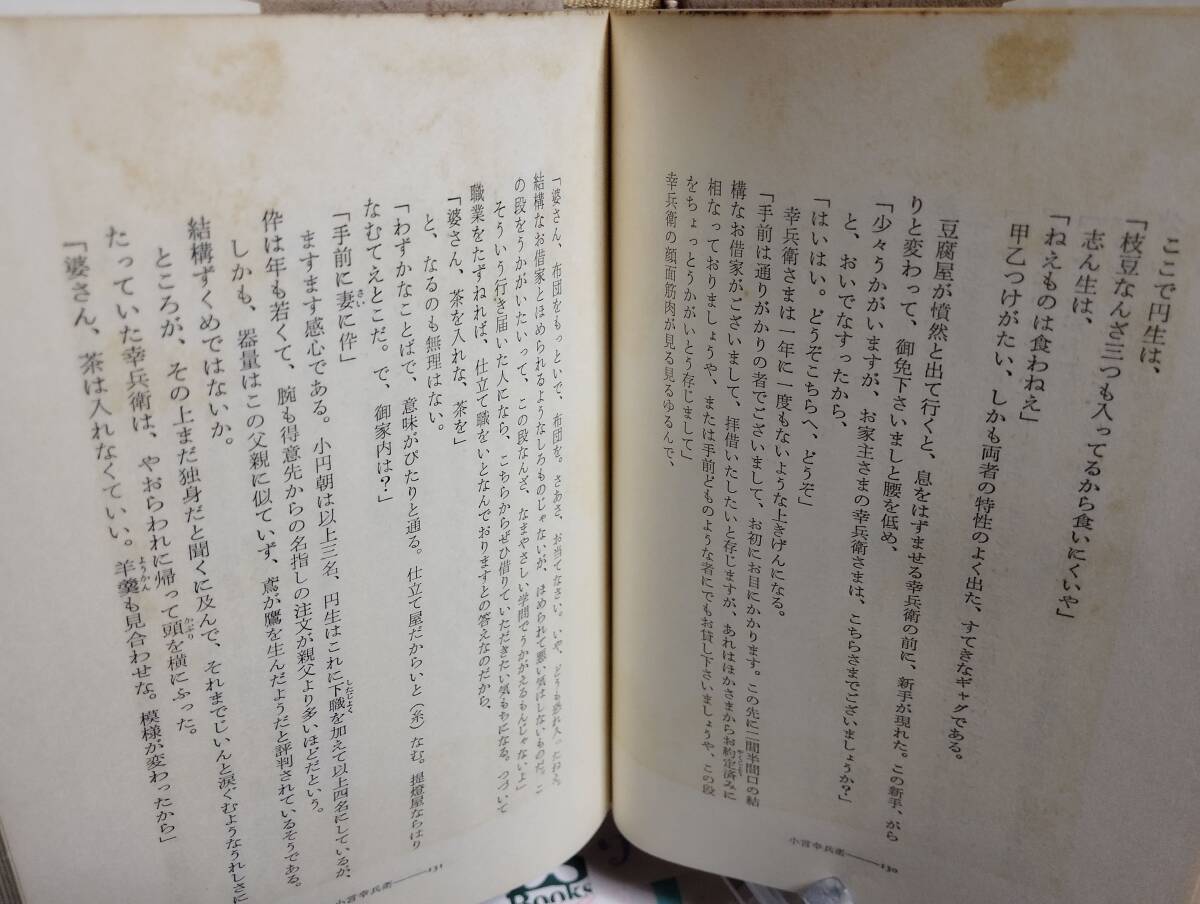 ここで円生は、
「枝豆なんざ三つも入ってるから食いにくいや」
志ん生は、
「ねえものは食わねえ」
甲乙つけがたい、しかも両者の特性のよく出た、すてきなギャグである。
豆腐屋が憤然と出て行くと、息をはずませる幸兵衛の前に、新手が現れた。この新手、がら
りと変わって、御免下さいましと腰を低め、
「少々うかがいますが、お家主さまの幸兵衛さまは、こちらさまでございましょうか?」
と、おいでなすったから、
「はいはい。どうぞこちらへ、どうぞ」
幸兵衛さまは一年に一度もないような上きげんになる。
「手前は通りがかりの者でございまして、お初にお目にかかります。この先に二間半間口の結
構なお借家がございまして、拝借いたしたいと存じますが、あれはほかさまからお約定済みに
相なっておりましょうや、または手前どものような者にでもお貸し下さいましょうや、この段
をちょっとうかがいとう存じまして」
幸兵衛の顔面筋肉が見る見るゆるんで、
小言幸兵衛――130
「婆さん、布団をもっといで、布団を。さあさ、お当てなさい。いや、どうも恐れ入ったねえ。
結構なお借家とほめられるようなしろものじゃないが、ほめられて悪い気はしないものだ。こ
の段をうかがいたいって、この段なんざ、なまやさしい学問でうかがえるもんじゃないよ」
そういう行き届いた人になら、こちらからぜひ借りていただきたい気もちになる。つづいて
職業をたずねれば、仕立て職をいとなんでおりますとの答えなのだから、
「婆さん、茶を入れな、茶を」
と、なるのも無理はない。
「わずかなことばで、意味がぴたりと通る。仕立て屋だからいと(糸)なむ。提燈屋ならはり
なむてえとこだ。で、御家内は?」
「手前に妻に伜」
ますます感心である。小円朝は以上三名、円生はこれに下職を加えて以上四名にしているが、
伜は年も若くて、腕も得意先からの名指しの注文が親父より多いほどだという。
しかも、器量はこの父親に似ていず、鳶が鷹を生んだようだと評判されているそうである。
結構ずくめではないか。
ところが、その上まだ独身だと聞くに及んで、それまでじいんと涙ぐむようなうれしさに
たっていた幸兵衛は、やおらわれに帰って頭を横にふった。
「婆さん、茶は入れなくていい。羊羹も見合わせな。模様が変わったから」
小言幸兵衛――131
Books